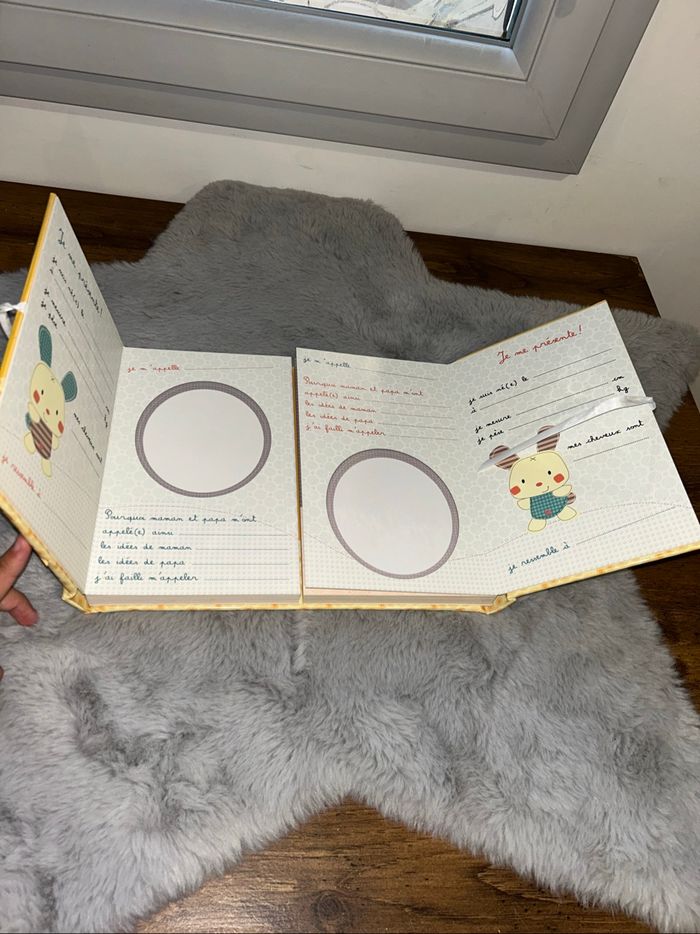 Je me présente!
je suis né(e) le
à
je mesure
je pèse
kg
mes cheveux sont
je ressemble à
je m'appelle
Pourquoi maman et papa m'ont
appelé(e) ainsi
les idées de maman
les idées de papa
j'ai failli m'appeler
je m'appelle
Pourquoi maman et papa m'ont
appelé(e) ainsi
les idées de maman
les idées de papa
j'ai failli m'appeler
Je me présente!
je suis né(e) le
à
cm
je mesure
kg
je pèse
mes cheveux sont
je ressemble à